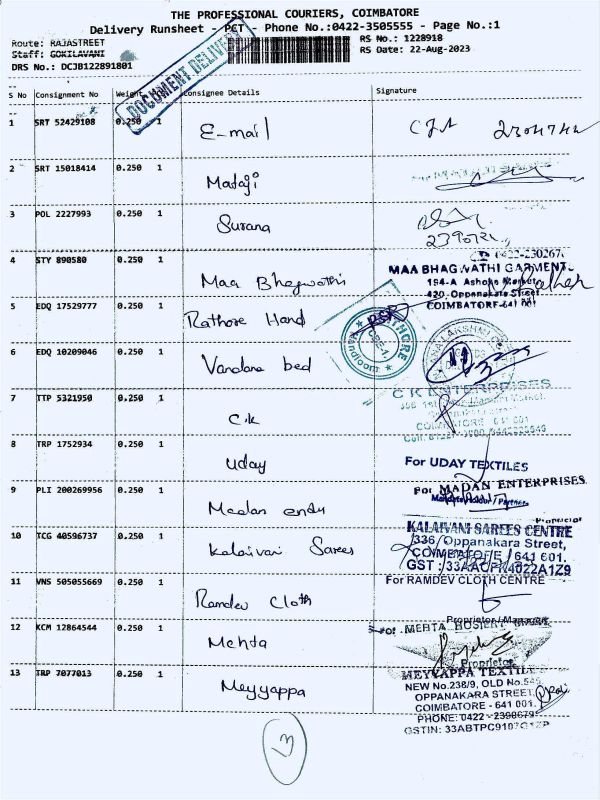 THE PROFESSIONAL COURIERS, COIMBATORE
Delivery Runsheet - PCT - Phone No.:0422-3505555 - Page No.:1
Route: RAJASTREET
RS No.: 1228918
Staff: GOKILAVANI
RS Date: 22-Aug-2023
DRS No.: DCJB122891801
DOCUMENT DELIVERY
S No Consignment No Weight Consignee Details Signature
1 SRT 52429108 0.250 E-mail
2 SRT 15018414 0.250 1 Mataji
3 POL 2227993 0.250 1 Surana
4 STY 890580 0.250 1 Maa Bhagwathi
0422-230267
MAA BHAGWATHI GARMENT
194-A Ashoka Market
420, Oppanakara Street
COIMBATORE-641 001
5 EDQ 17529777 0.250 1 Rathore Hand
RATHORE
6 EDQ 10209046 0.250 1 Vandana bed
7 TTP 5321950 0.250 1 C.K
C K ENTERPRISES
COIMBATORE 641 001
8 TRP 1752934 0.250 1 Uday
For UDAY TEXTILES
9 PLI 200269956 0.250 1 Madan
For MADAN ENTERPRISES
Partner
10 TCG 40596737 0.250 1 Kalaivani Sarees
Proprietor
KALAIVANI SAREES CENTRE
336, Oppanakara Street,
COIMBATORE / 641 001.
11 VNS 505055669 0.250 1 Ramdev Cloth
For RAMDEV CLOTH CENTRE
Proprietor / Manager
12 KCM 12864544 0.250 1 Mehta
For MEHTA HOSIERY
Proprietor
13 TRP 7077013 0.250 1 Meyyappa
MEYYAPPA TEXTILE
NEW No.238/9, OLD No.545
OPPANAKARA STREET
COIMBATORE - 641 001.
PHONE: 0422 - 2390679